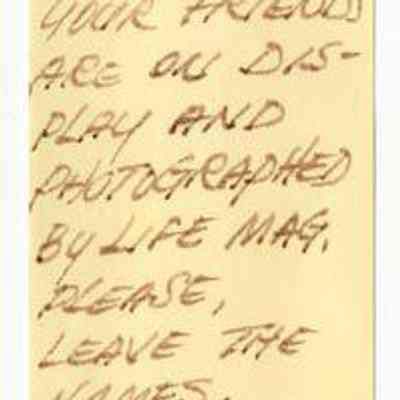 YOUR FRIENDS
ARE ON DIS-
PLAY AND
PHOTOGRAPHED
BY LIFE MAG.
PLEASE,
LEAVE THE
NAMES.